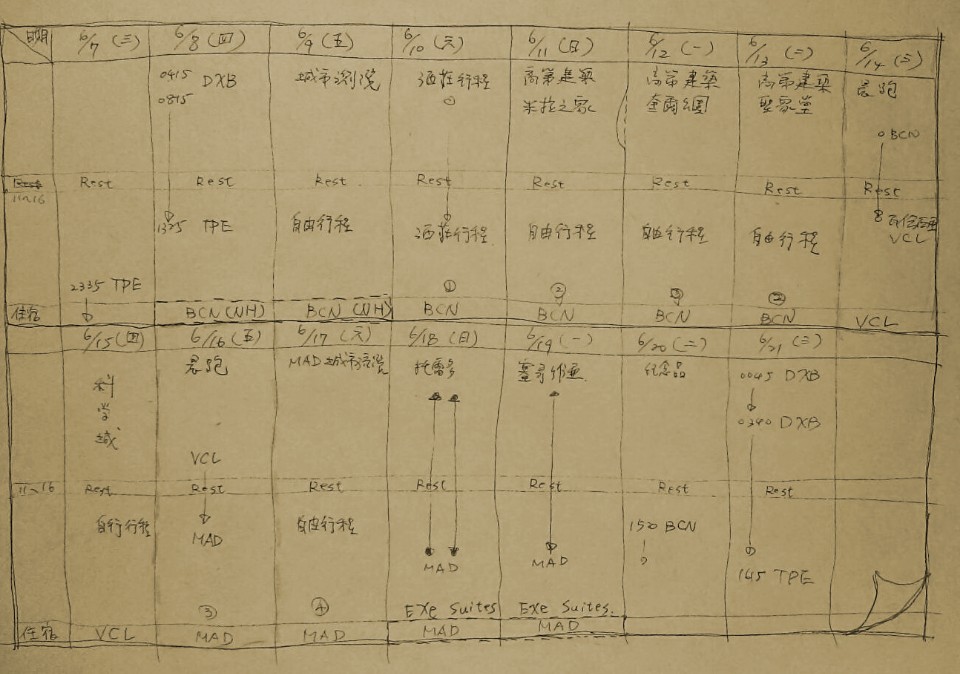 日期 6/7 (三) 6/8 (四) 6/9 (五) 6/10 (六) 6/11 (日) 6/12 (一) 6/13 (二) 6/14 (三)
0415 DXB 城市瀏覽 酒莊行程 高第建築 高第建築 高第建築 晨跑
0815 ① 米拉之家 奎爾公園 聖家堂
BCN
Rest Rest Rest Rest Rest Rest Rest Rest
11~16
1325 TPE 自由行程 酒莊行程 自由行程 自由行程 自由行程
VCL
2335 TPE ① ② ③ ②
住宿 BCN (NH) BCN (NH) BCN BCN BCN BCN VCL
6/15 (四) 6/16 (五) 6/17 (六) 6/18 (日) 6/19 (一) 6/20 (二) 6/21 (三)
科 晨跑 MAD 城市 托雷多 紀念品 0045 DXB
學
城 0340 DXB
VCL
11~16 Rest Rest Rest Rest Rest Rest Rest
自行行程 MAD 自由行程 MAD MAD 150 BCN
145 TPE
③ ④ Exe Suites Exe Suites
住宿 VCL MAD MAD MAD MAD